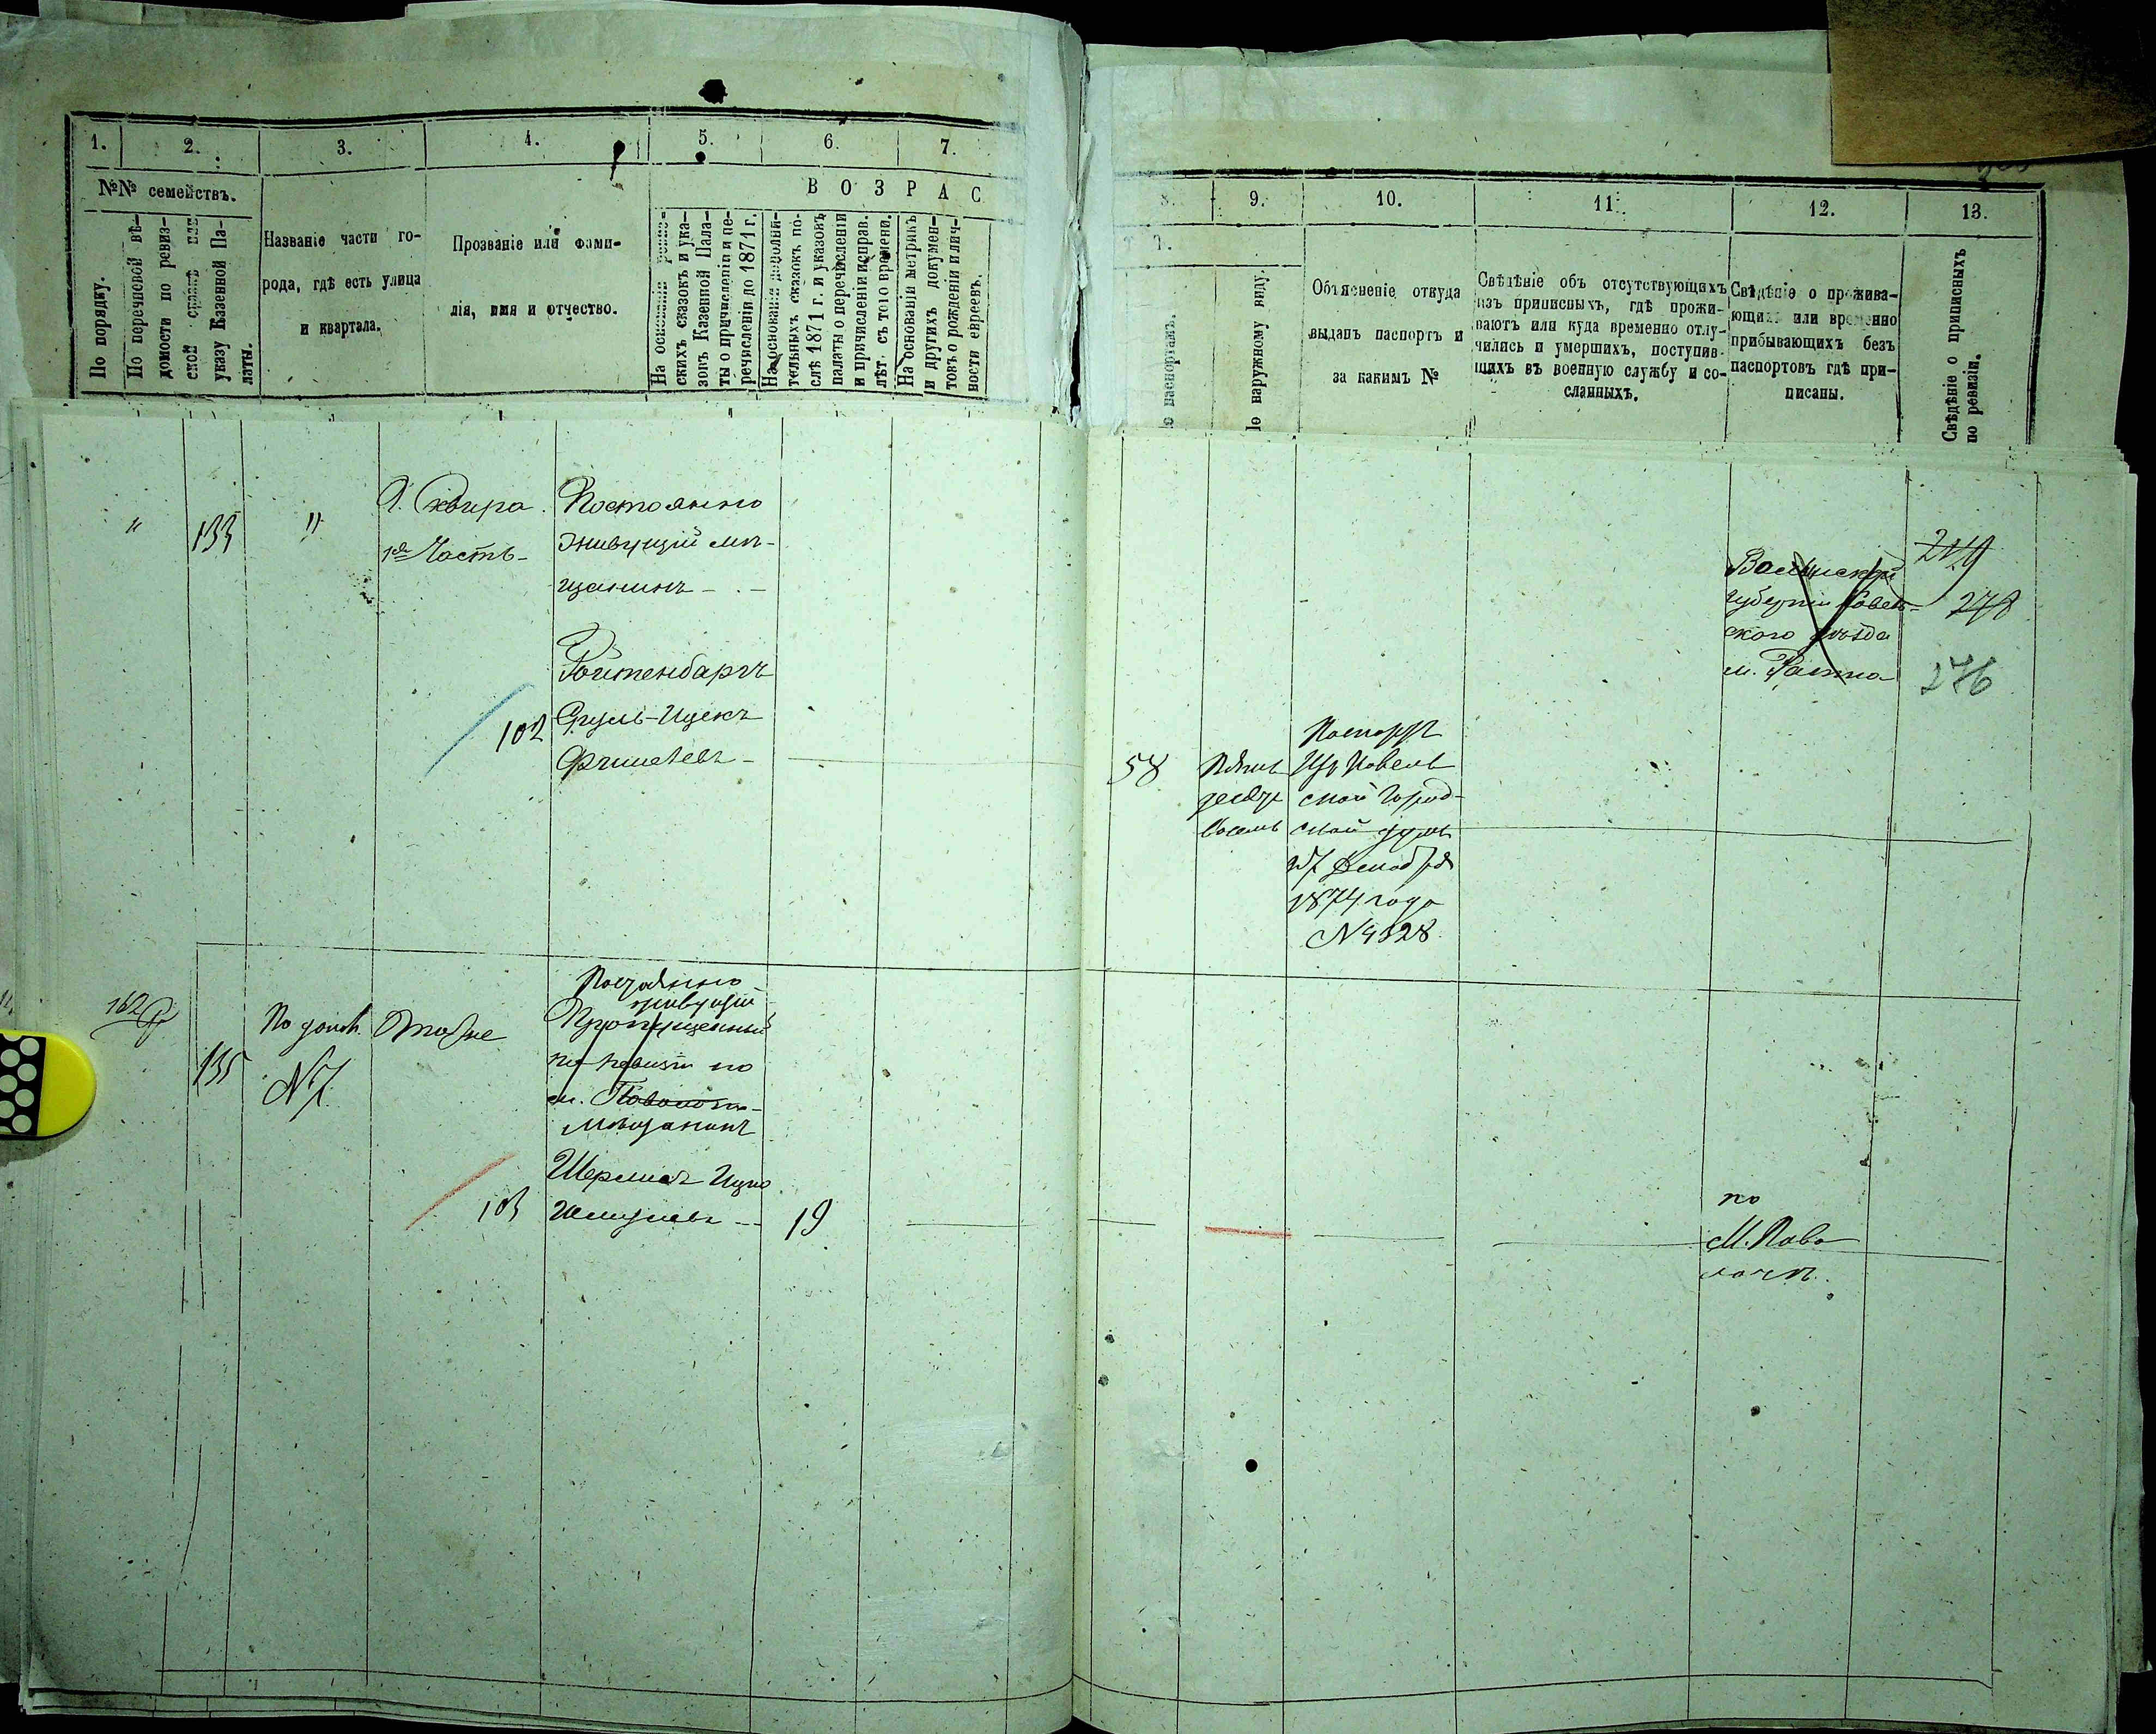 1.
2.
3.
4.
5.
6.
7.
№№ семействъ.
По порядку.
По переписной вѣ-
домости по ревиз-
ской сказкѣ или
указу Казенной Па-
латы.
Названіе части го-
рода, гдѣ есть улица
и квартала.
Прозваніе или фами-
лія, имя и отчество.
ВОЗРАС
На основаніи ревиз-
скихъ сказокъ и ука-
зовъ Казенной Пала-
ты о причисленіи и пе-
речисленіи до 1871 г.
На основаніи дополни-
тельныхъ сказокъ по-
слѣ 1871 г. и указовъ
палаты о перечисленіи
и причисленіи исправ.
лѣт. съ того времени.
На основаніи метрикъ
и другихъ докумен-
товъ о рожденіи и лич-
ности евреевъ.
8.
9.
10.
11.
12.
13.
Т.
По паспортамъ.
По наружному виду.
Объясненіе откуда
выданъ паспортъ и
за какимъ №
Свѣдѣніе объ отсутствующихъ
изъ приписныхъ, гдѣ прожи-
ваютъ или куда временно отлу-
чились и умершихъ, поступив-
шихъ въ военную службу и со-
сланныхъ.
Свѣдѣніе о прожива-
ющихъ или временно
прибывающихъ безъ
паспортовъ гдѣ при-
писаны.
Свѣдѣніе о приписныхъ
по ревизіи.
"
133
"
Г. Сквира.
1я Часть-
Постоянно
живущій мѣ-
щанинъ - -
Ройтенбаргъ
102
Сруль-Ицекъ
58
Пять
десятъ
восемь
Паспортъ
Изъ Ковель
ской Город-
ской думы
27 Декабря
1874 года
N 4328
Волынской
губерніи Ковель-
ского уѣзда
м. Ратна
219
278
276
162
135
По дополн.
N 7
Тоже
Постоянно
живущій
Пропущенный
по ревизіи по
м. Паволочи-
мѣщанинъ
103
Шерман Ицко
19
по
М. Паво
лочѣ.